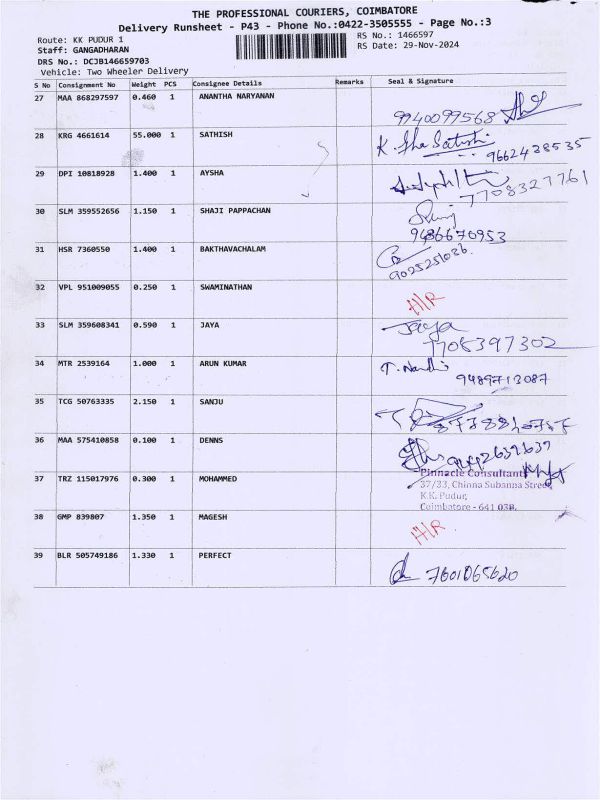 THE PROFESSIONAL COURIERS, COIMBATORE
Delivery Runsheet - P43 - Phone No.:0422-3505555 - Page No.:3
Route: KK PUDUR 1
RS No.: 1466597
Staff: GANGADHARAN
RS Date: 29-Nov-2024
DRS No.: DCJB146659703
Vehicle: Two Wheeler Delivery
S No Consignment No Weight PCS Consignee Details Remarks Seal & Signature
27 MAA 868297597 0.460 1 ANANTHA NARYANAN
9940099568
28 KRG 4661614 55.000 1 SATHISH
9662438535
29 DPI 10818928 1.400 1 AYSHA
7708327761
30 SLM 359552656 1.150 1 SHAJI PAPPACHAN
9486670953
31 HSR 7360550 1.400 1 BAKTHAVACHALAM
32 VPL 951009055 0.250 1 SWAMINATHAN
33 SLM 359608341 0.590 1 JAYA
Jaya
7708397302
34 MTR 2539164 1.000 1 ARUN KUMAR
9489713087
35 TCG 50763335 2.150 1 SANJU
36 MAA 575410858 0.100 1 DENNS
37 TRZ 115017976 0.300 1 MOHAMMED
Pinnacle Consultant
37/33, Chinna Subanna Street,
K.K. Pudur,
Coimbatore - 641 038.
38 GMP 839807 1.350 1 MAGESH
39 BLR 505749186 1.330 1 PERFECT
7601065620